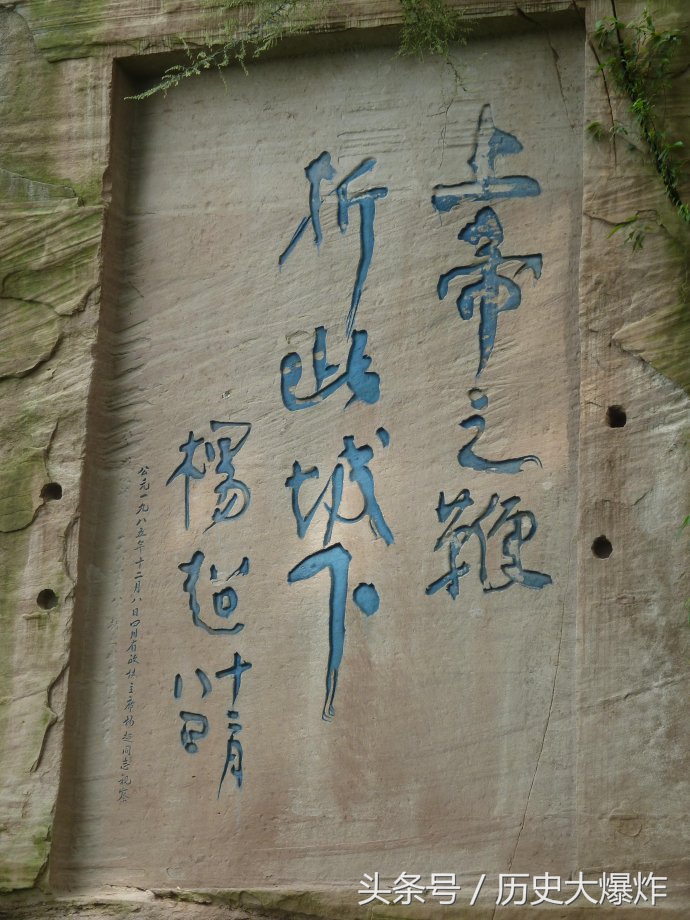 上帝之鞭
折此城下
杨超
十二月
八日
公元一九八五年十二月八日四川省政协主席杨超同志视察
头条号 / 历史大爆炸